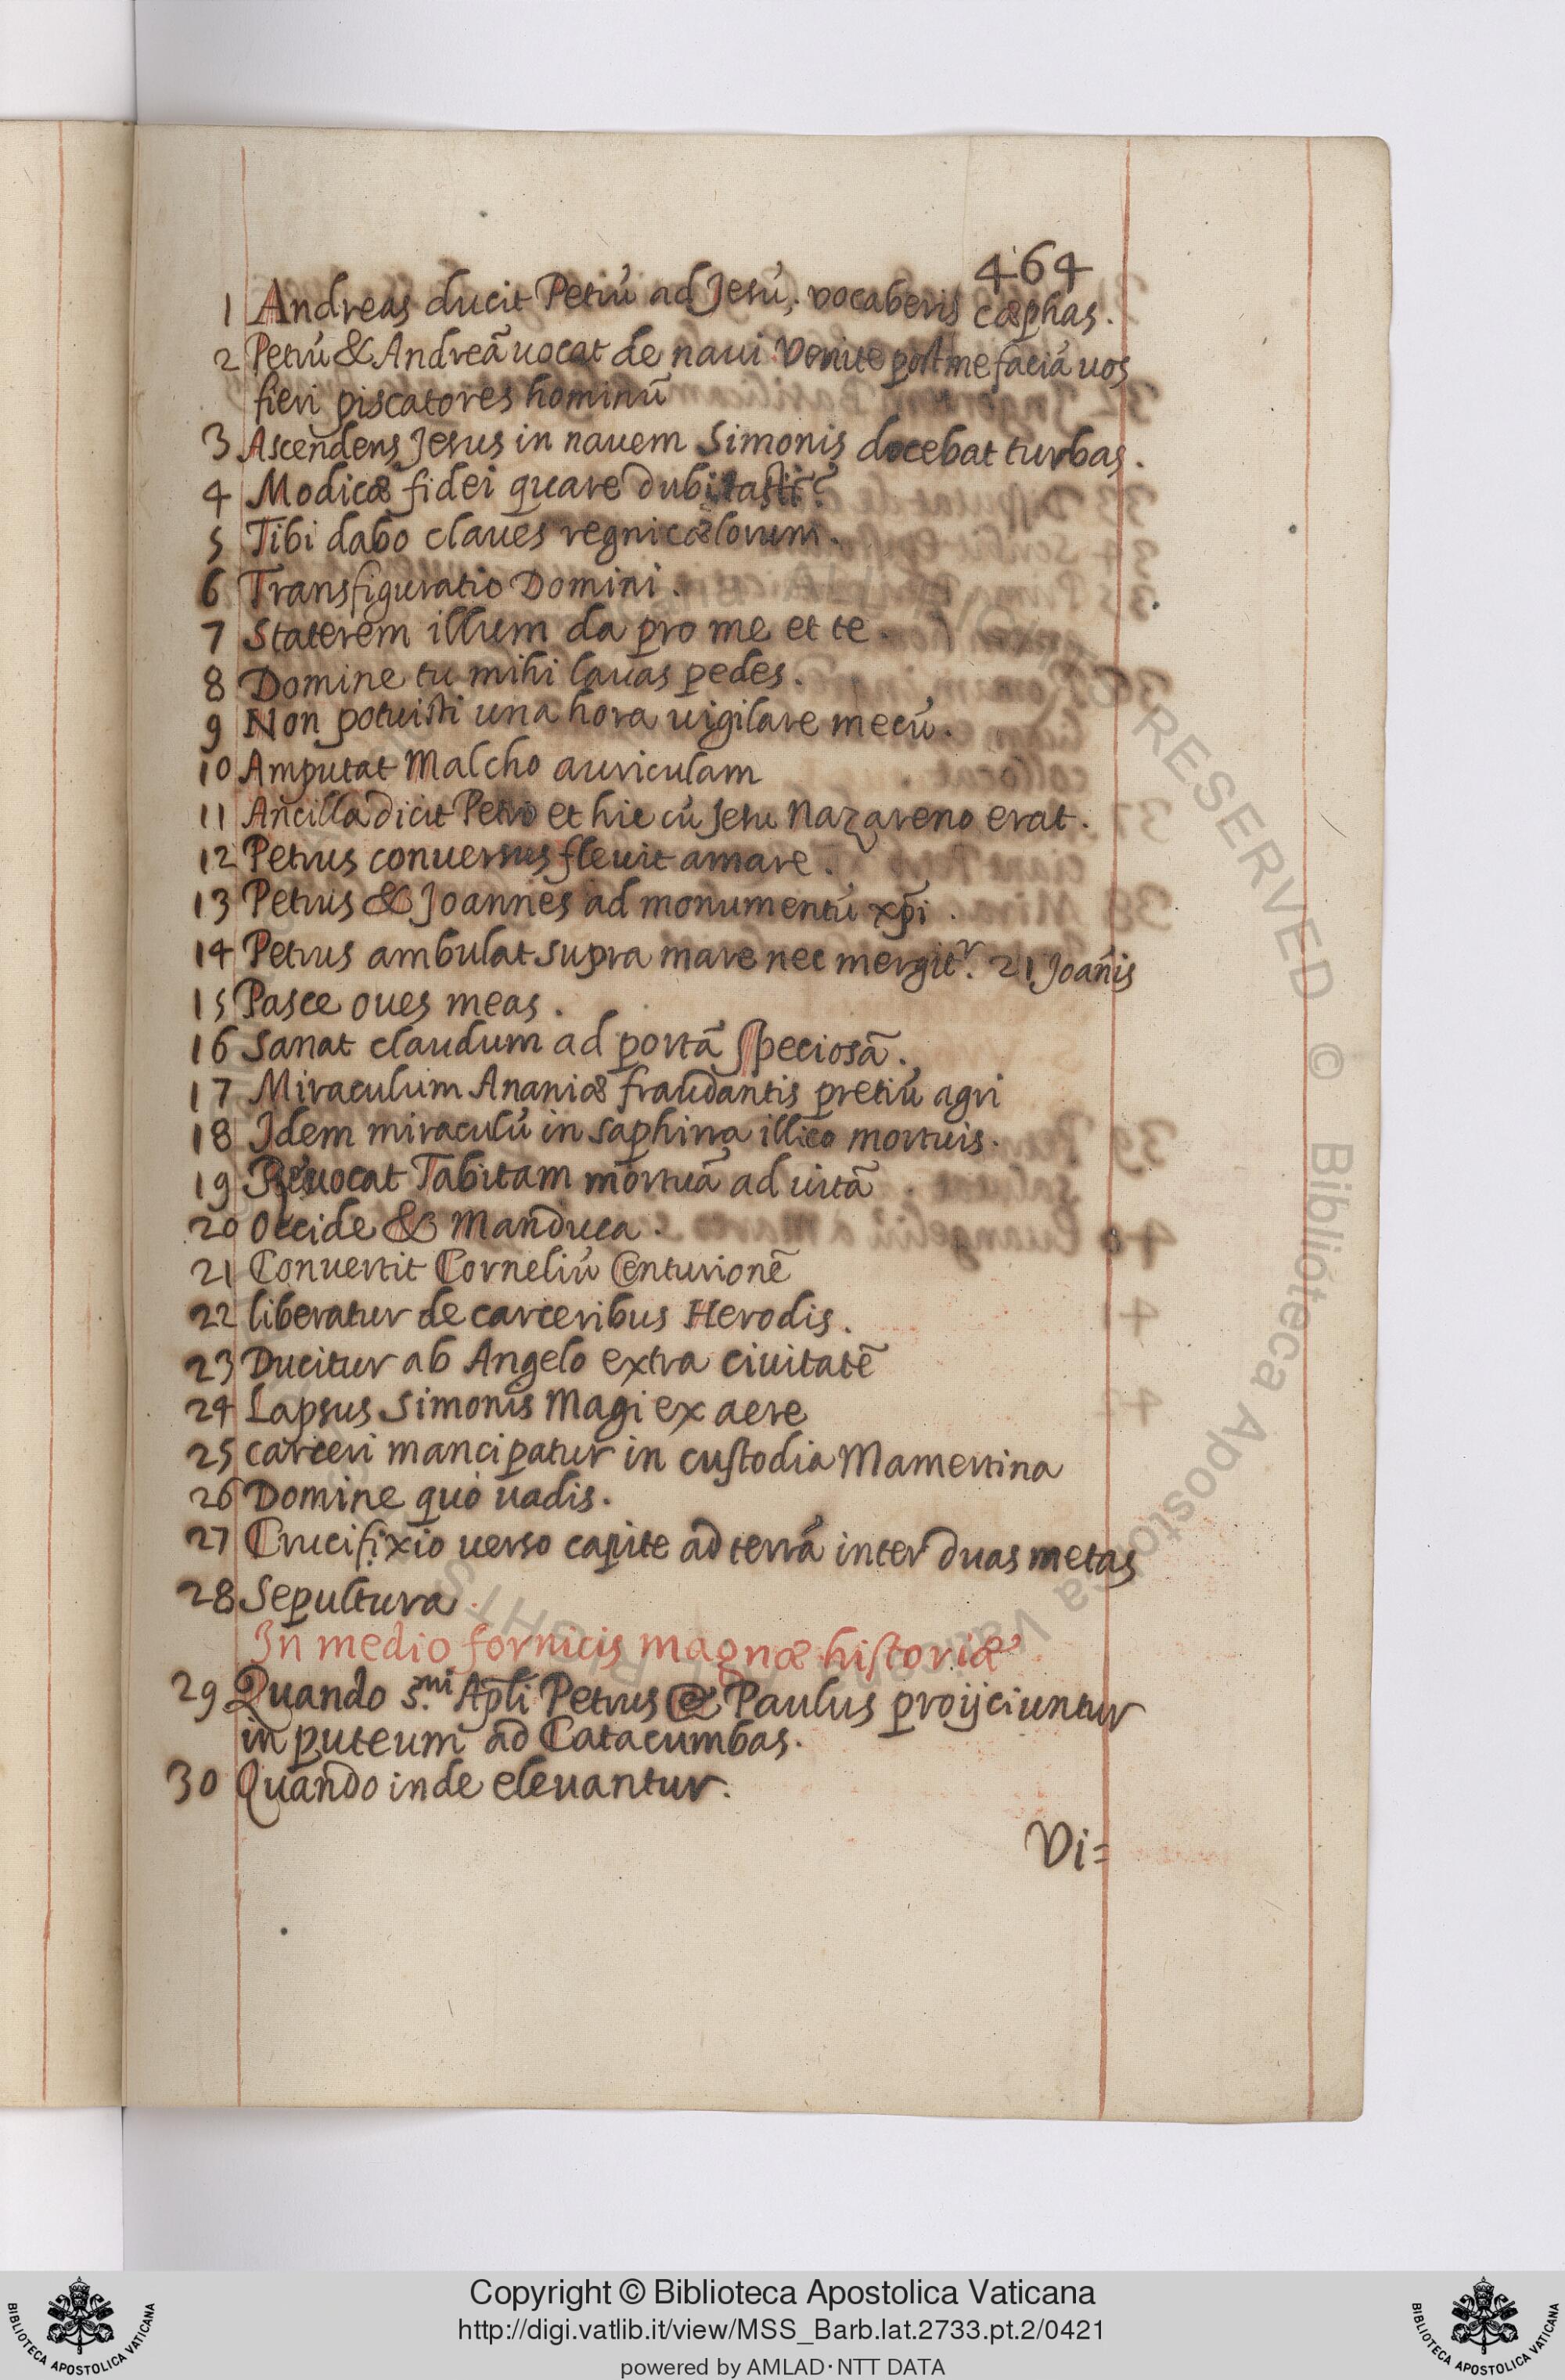 464
1 Andreas ducit Petrũ ad Jesũ, vocaberis cæphas.
2 Petrũ & Andreã uocat de naui Venite post me faciã uos
fieri piscatores hominũ
3 Ascendens Jesus in nauem Simonis docebat turbas.
4 Modicæ fidei quare dubitasti?
5 Tibi dabo claues regni cælorum.
6 Transfiguratio Domini.
7 Staterem illum da pro me et te.
8 Domine tu mihi lauas pedes.
9 Non potuisti una hora uigilare mecũ.
10 Amputat Malcho auriculam
11 Ancilla dicit Petro et hic cũ Jesu Nazareno erat.
12 Petrus conuersus fleuit amare.
13 Petrus & Joannes ad monumentũ xp̃i.
14 Petrus ambulat supra mare nec mergitʳ. 21 Joãnis
15 Pasce oues meas.
16 Sanat claudum ad portã speciosã.
17 Miraculum Ananiæ fraudantis pretiũ agri
18 Idem miraculũ in saphirra illico mortuis.
19 Reuocat Tabitam mortuã ad uitã
20 Occide & Manduca.
21 Conuertit Corneliũ Centurionẽ
22 liberatur de carceribus Herodis.
23 Ducitur ab Angelo extra ciuitatẽ
24 Lapsus Simonis Magi ex aere
25 carceri mancipatur in custodia Mamertina
26 Domine quò uadis.
27 Crucifixio uerso capite ad terrã inter duas metas
28 Sepultura.
In medio fornicis magnæ historiæ
29 Quando S.ᵐⁱ Apl̃i Petrus & Paulus proijciuntur
in puteum ad Catacumbas.
30 Quando inde eleuantur.
Vi=
RESERVED © Biblioteca Apostolica Vaticana
Copyright © Biblioteca Apostolica Vaticana
http://digi.vatlib.it/view/MSS_Barb.lat.2733.pt.2/0421
powered by AMLAD·NTT DATA
BIBLIOTECA APOSTOLICA VATICANA
BIBLIOTECA APOSTOLICA VATICANA